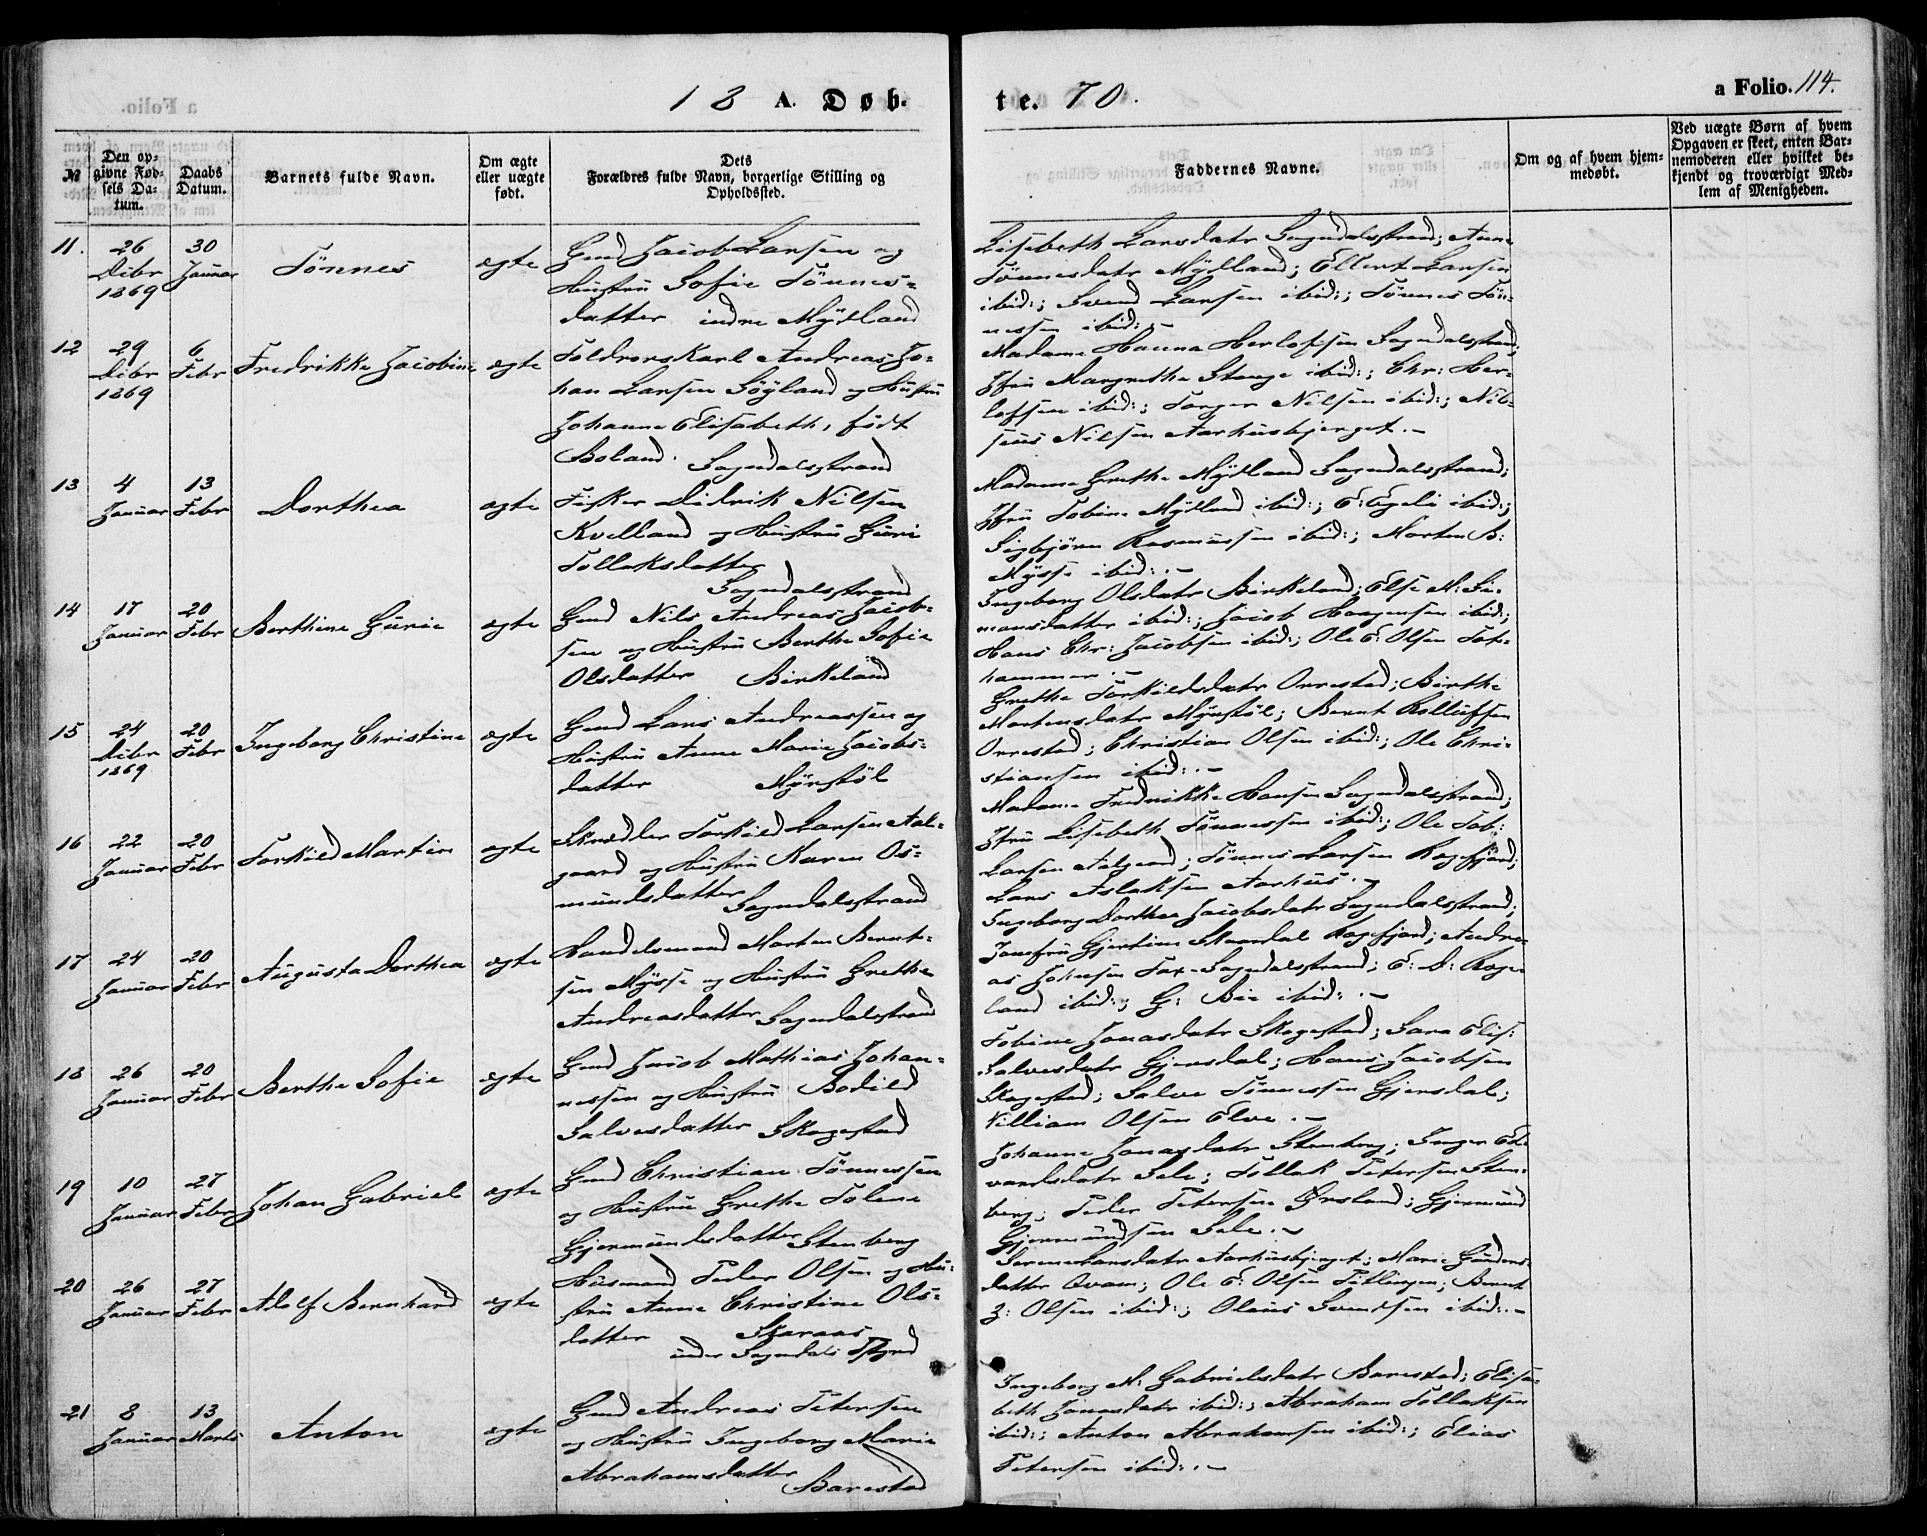 18 A. Døb-
te. 70.
a Folio. 114.
№
Den op-
givne Fød-
sels Da-
tum.
Daabs
Datum.
Barnets fulde Navn.
Om ægte
eller uægte
født.
Dets
Forældres fulde Navn, borgerlige Stilling og
Opholdssted.
Faddernes Navne.
Om og af hvem hjem-
medøbt.
Ved uægte Børn af hvem
Opgaven er skeet, enten Bar-
nemoderen eller hvilket be-
kjendt og troværdigt Med-
lem af Menigheden.
11.
26
Decbr
1869
30
Januar
Tönnes
ægte
Gmd Jacob Larsen og
Hustru Sofie Tönnes-
datter indre Mydland
Lisebeth Larsdatr Sogndalsstrand; Anne
Tönnesdatr Mydland; Ellert Larsen
ibid:; Svend Larsen ibid:; Tönnes Tön-
nesen ibid:.-
12
29
Decbr
1869
6
Febr
Fredrikke Jacobine
ægte
Toldrorskarl Andreas Jo-
han Larsen Söyland og Hustru
Johanne Elisabeth, født
Boland. Sogndalsstrand
Madame Hanna Herlofsen Sogndalsstrand;
Jfru Margrethe Stange ibid:; Chr: Her-
lofsen ibid:; Torger Nilsen ibid:; Nil-
seus Nilsen Aarhusbjerget.-
13
4
Januar
13
Febr
Dorthea
ægte
Fisker Didrik Nilsen
Kvelland og Hustru Guri
Tollaksdatter
Sogndalsstrand
Madame Grethe Mydland Sogndalsstrand;
Jfru Tobine Mydland ibid:; E: Egeli ibid:;
Sigbjörn Rasmussen ibid:; Morten B:
Mysse ibid:.-
14
17
Januar
20
Febr
Berthine Gurie
ægte
Gmd Nils Andreas Jacob-
sen og Hustru Berthe Sofie
Olsdatter Birkeland
Ingeborg Olsdatr Birkeland; Else M: Si-
monsdatter ibid:; Jacob Haagensen ibid:;
Hans Chr: Jacobsen ibid:; Ole E: Olsen Tox-
hammer.-
15
24
Decbr
1869
20
Febr
Ingeborg Christine
ægte
Gmd Lars Andreassen og
Hustru Anne Marie Jacobs-
datter Myrstöl
Grethe Torkildsdatr Orrestad; Birthe
Martensdatr Myrstöl; Bernt Rolluffsen
Orrestad; Christian Olsen ibid:; Ole Chri-
stiansen ibid:.-
16
22
Januar
20
Febr
Torkild Martin
ægte
Skrædder Torkild Larsen Aal-
gaard og Hustru Karen Os-
mundsdatter Sogndalsstrand
Madame Fredrikke Hansen Sogndalsstrand;
Jfru Lisebeth Tönnessen ibid:; Ole Tob:
Larsen Aalgaard; Tönnes Larsen Ragefjord;
Lars Aslaksen Aarhus.-
17
24
Januar
20
Febr
Augusta Dorthea
ægte
Handelsmand Morten Bernt-
sen Mysse og Hustru Grethe
Andreasdatter Sogndalsstrand
Ingeborg Dorthea Jacobsdatr Sogndalsstrand;
Jomfru Gjertine Skaardal Ragefjord; Andre-
as Johnsen Tax- Sogndalsstrand; E: D: Roge-
land ibid:; G: Bie ibid:.-
18
26
Januar
20
Febr
Berthe Sofie
ægte
Gmd Jacob Mathias Johan-
nessen og Hustru Bodild
Salvesdatter Skogestad
Tobine Jonasdatr Skogestad; Sara Elis:
Salvesdatr Gjersdal; Hans Jacobsen
Skogestad; Salve Tönnessen Gjersdal;
Villiam Olsen Elve.-
19
10
Januar
27
Febr
Johan Gabriel
ægte
Gmd Christian Tönnessen
og Hustru Grethe Tolene
Gjermundsdatter Stenberg
Johanne Jonasdatr Stenberg; Inger Ed-
vardsdatr Sele; Tollak Petersen Sten-
berg; Peder Petersen Örsland; Gjermund
Gjermundsen Sele.-
20
26
Januar
27
Febr
Adolf Bernhard
ægte
Husmand Peder Olsen og Hu-
stru Anne Christine Ols-
datter Skaraas
under Sogndals Pstgrd
Serene Larsdatr Aarhusbjerget; Marie Gunders-
datter Qvam; Ole E: Olsen Titlingen; Bernt
Z: Olsen ibid:; Olaus Svendsen ibid:.-
21
8
Januar
13
Marts
Anton
ægte
Gmd Andreas Petersen
og Hustru Ingeborg Marie
Abrahamsdatter
Barestad
Ingeborg M: Gabrielsdatr Barestad; Elisa-
beth Jonasdatr ibid:; Abraham Tollaksen
ibid:; Anton Abrahamsen ibid:; Elias
Petersen ibid:.-